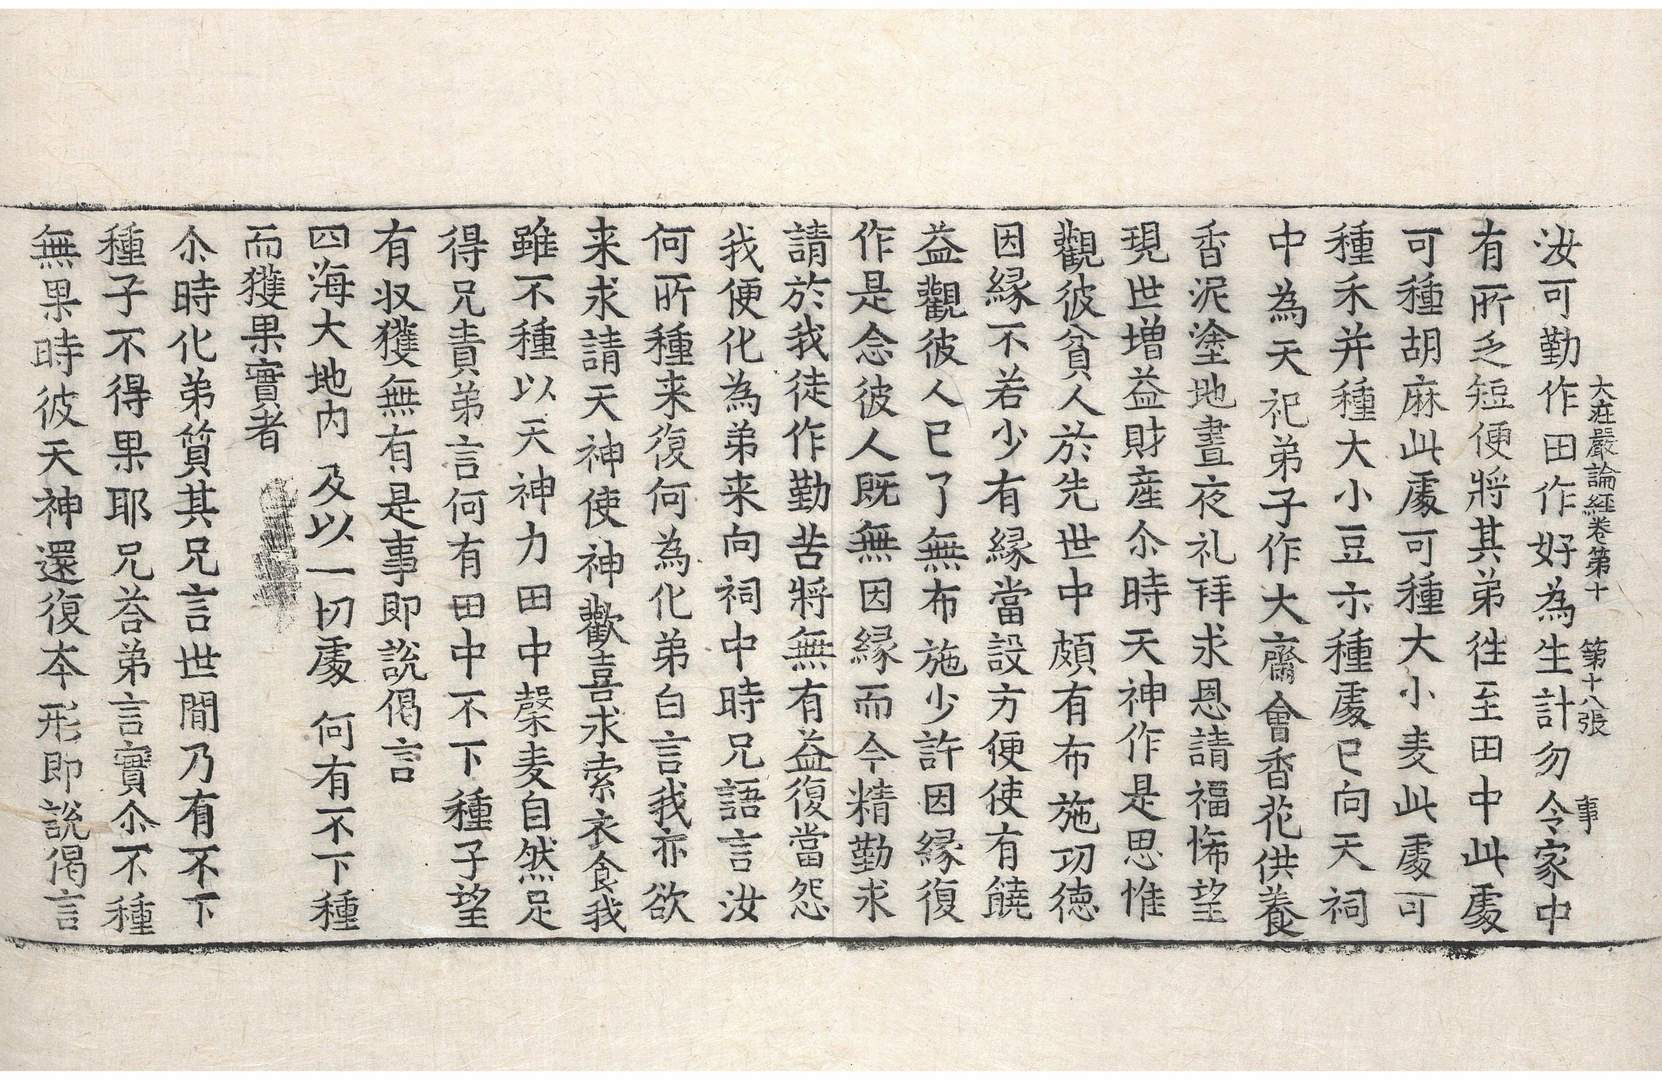 大莊嚴論經卷第十 第十八張 事
汝可勤作田作好為生計勿令家中
有所乏短便將其弟往至田中此處
可種胡麻此處可種大小麦此處可
種禾并種大小豆示種處已向天祠
中為天祀弟子作大齋會香花供養
香泥塗地晝夜礼拜求恩請福悕望
現世增益財産尒時天神作是思惟
觀彼貧人於先世中頗有布施功德
因縁不若少有縁當設方便使有饒
益觀彼人已了無布施少許因縁復
作是念彼人既無因縁而今精勤求
請於我徒作勤苦將無有益復當怨
我便化為弟来向祠中時兄語言汝
何所種来復何為化弟白言我亦欲
来求請天神使神歡喜求索衣食我
雖不種以天神力田中糓麦自然足
得兄責弟言何有田中不下種子望
有収獲無有是事即說偈言
四海大地内 及以一切處 何有不下種
而獲果實者
尒時化弟質其兄言世間乃有不下
種子不得果耶兄荅弟言實尒不種
無果時彼天神還復夲形即說偈言